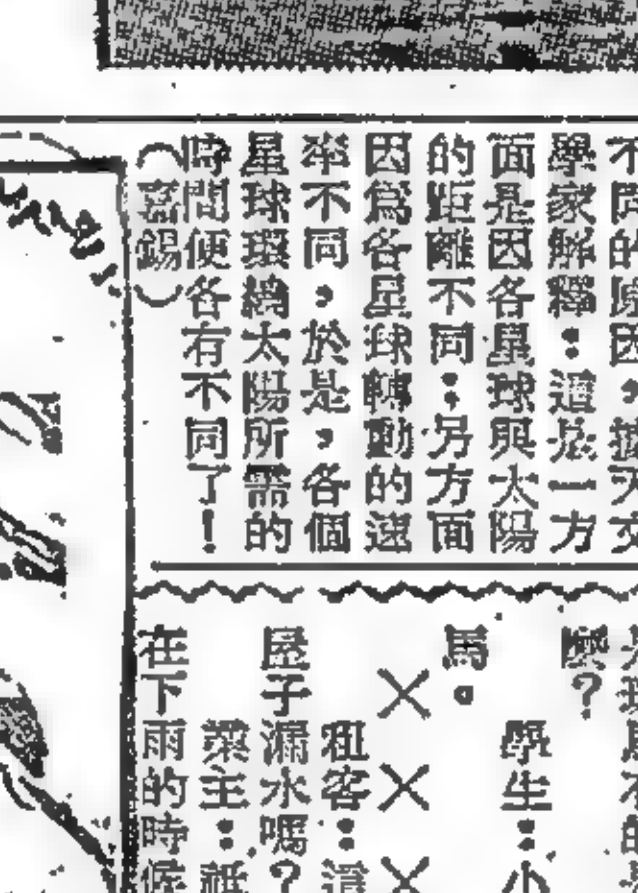 不同的原因，據天文
學家解釋：這是一方
面是因各星球與太陽
的距離不同；另方面
因爲各星球轉動的速
率不同，於是，各個
星球環繞太陽所需的
時間便各有不同了！
（嘉錫）
麼？
學生：小
馬。
×××
租客：這
屋子漏水嗎？
業主：祇
在下雨的時候